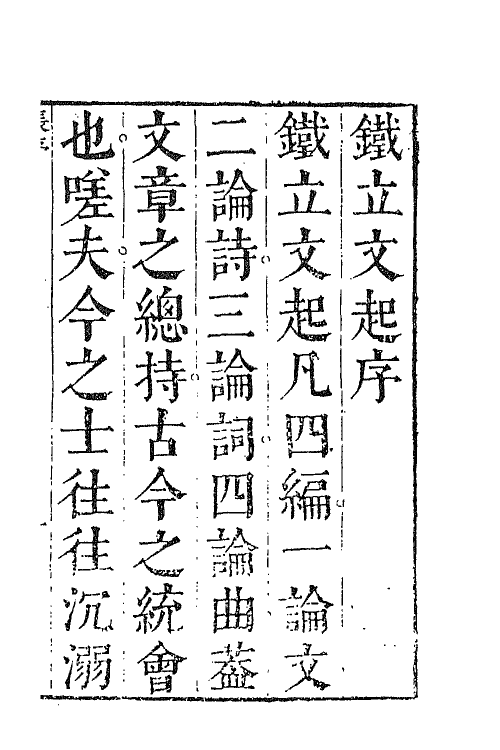 鐵立文起序
鐵立文起凡四編一論文
二論詩三論詞四論曲葢
文章之總持古今之統會
也嗟夫今之士往往沉溺